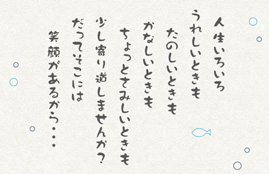 人生いろいろ
うれしいときも
たのしいときも
かなしいときも
ちょっとさみしいときも
少し寄り道しませんか？
だってそこには
笑顔があるから・・・